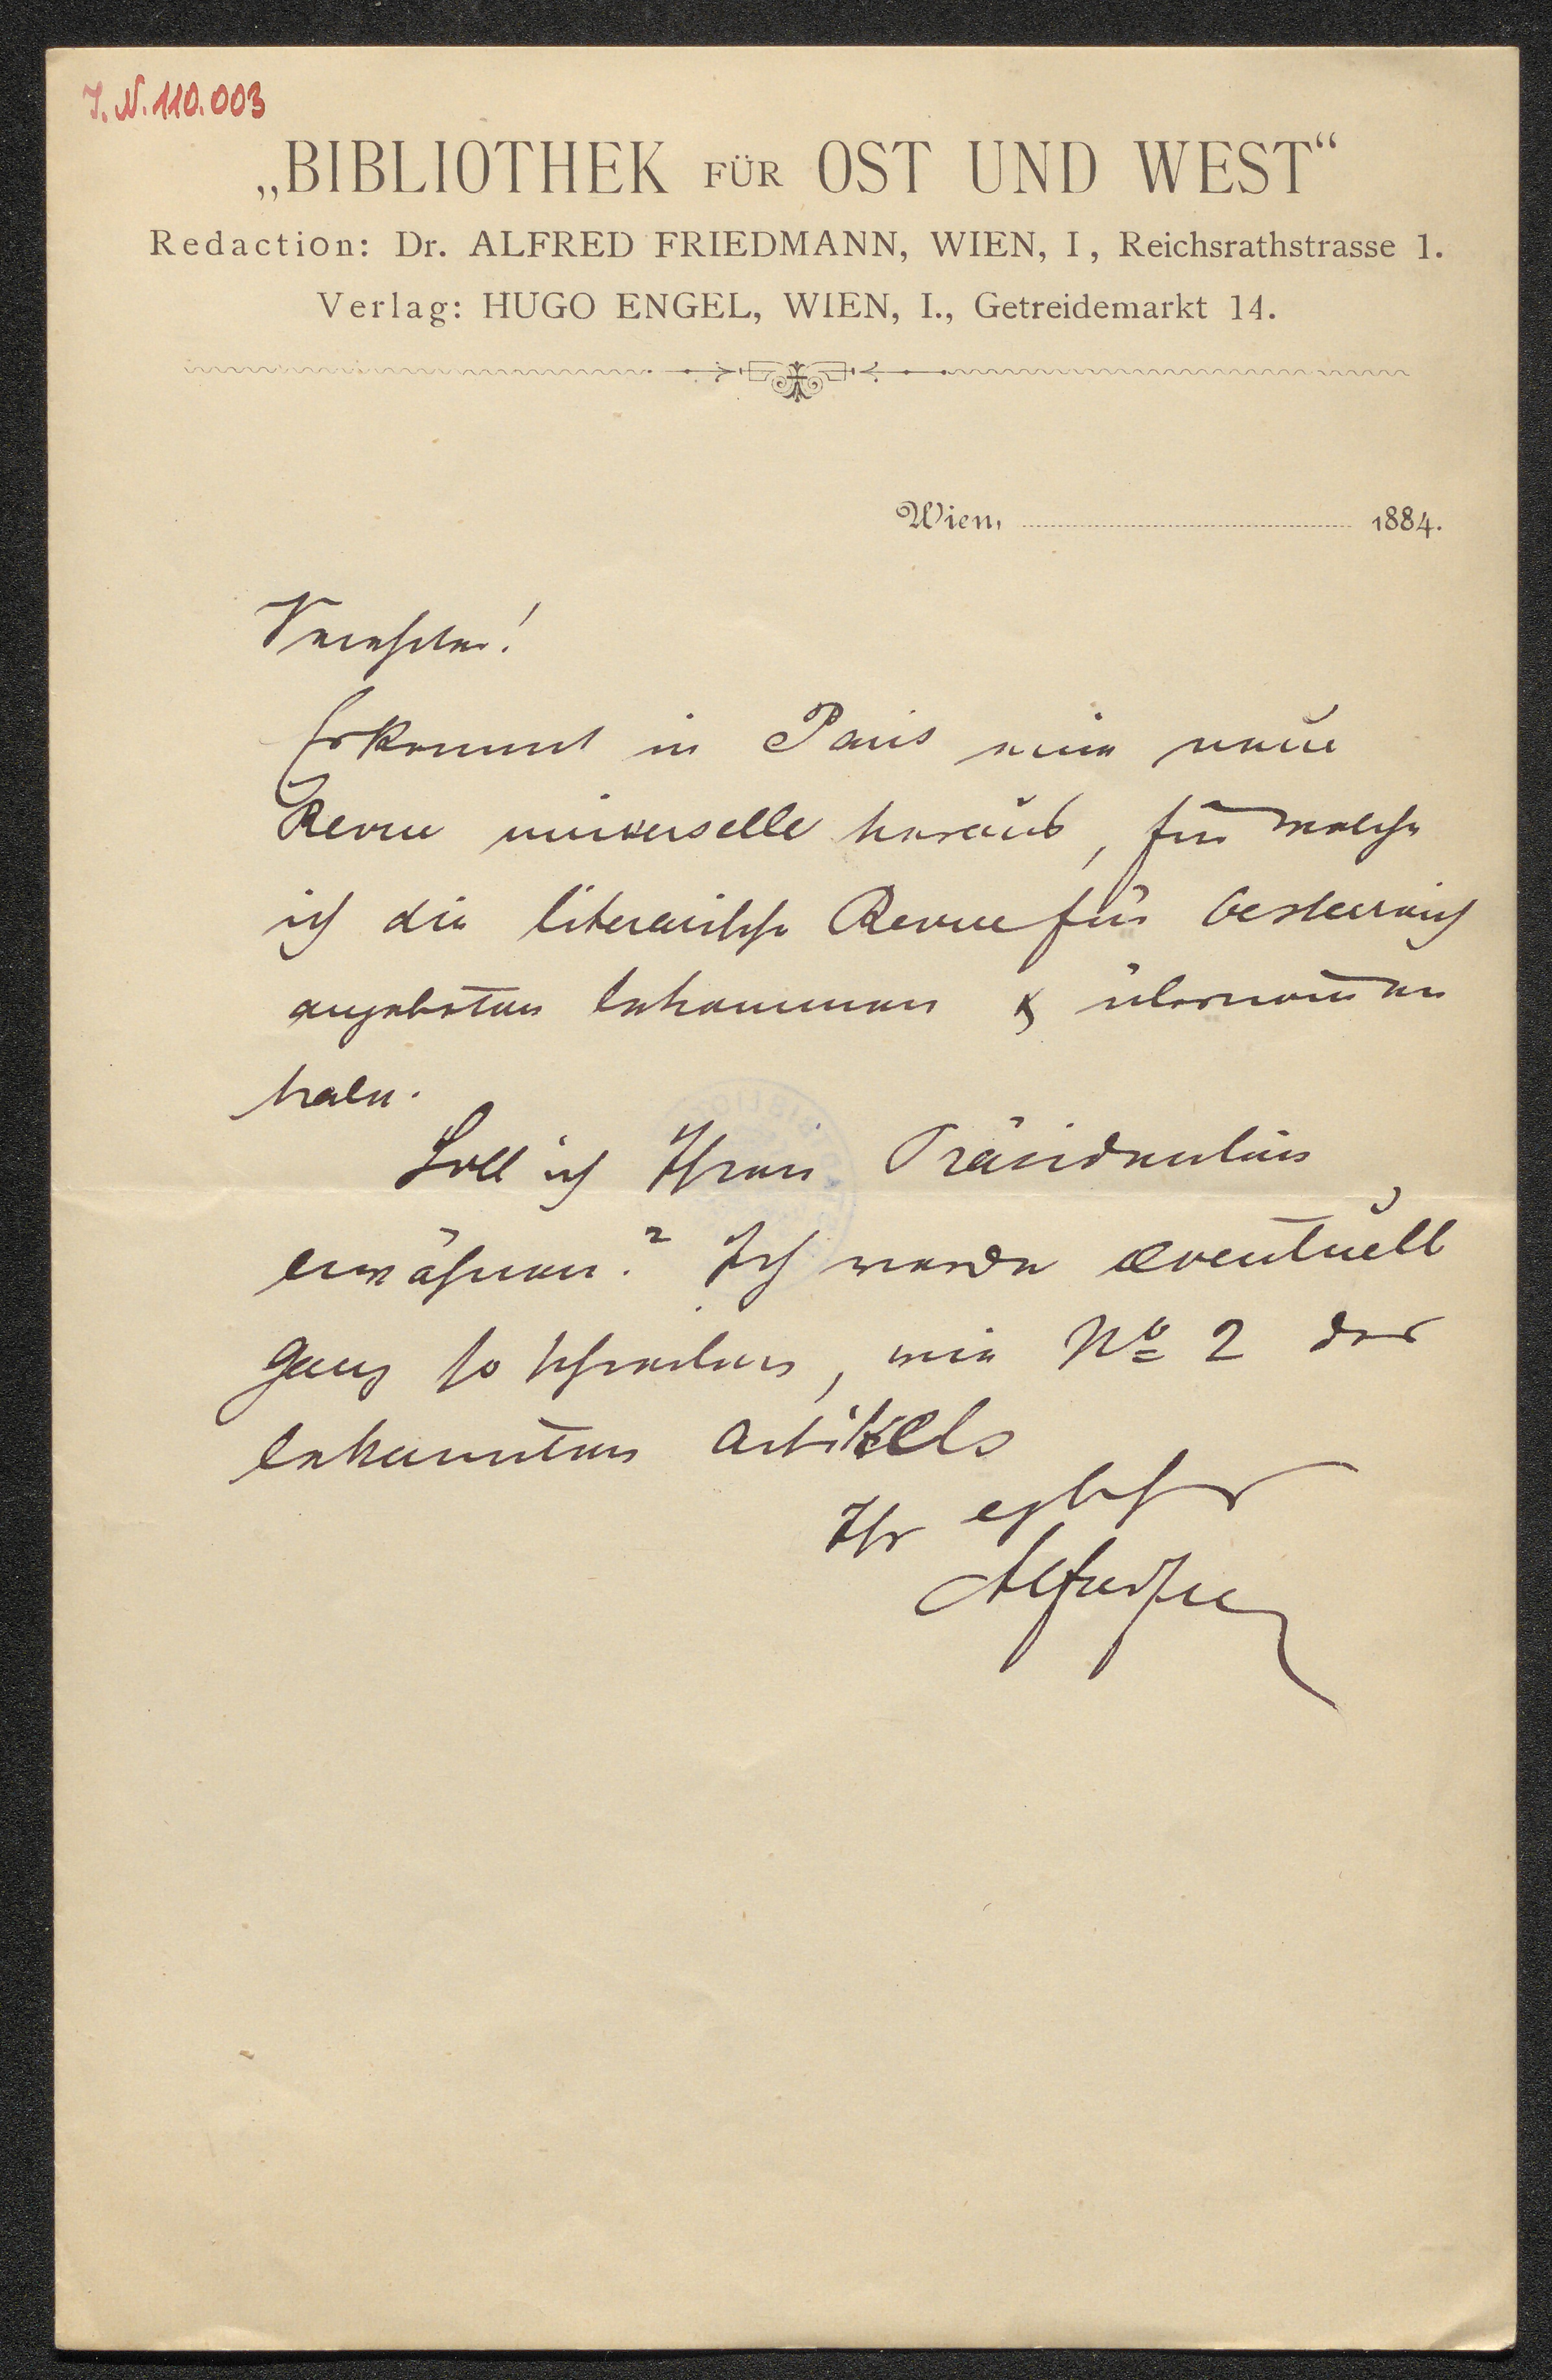 I. N. 110.003
„BIBLIOTHEK FÜR OST UND WEST“
Redaction: Dr. ALFRED FRIEDMANN, WIEN, I, Reichsrathstrasse 1.
Verlag: HUGO ENGEL, WIEN, I., Getreidemarkt 14.
Wien, 1884.
Verehrter!
Es kommt in Paris eine neue
Revue universelle heraus, für welche
ich die literarische Revue für Oesterreich
angeboten bekommen & übernommen
habe.
Soll ich Ihren
erwähnen? Ich werde eventuell
ganz so schreiben, wie No 2 des
bekannten Artikels
Ihr